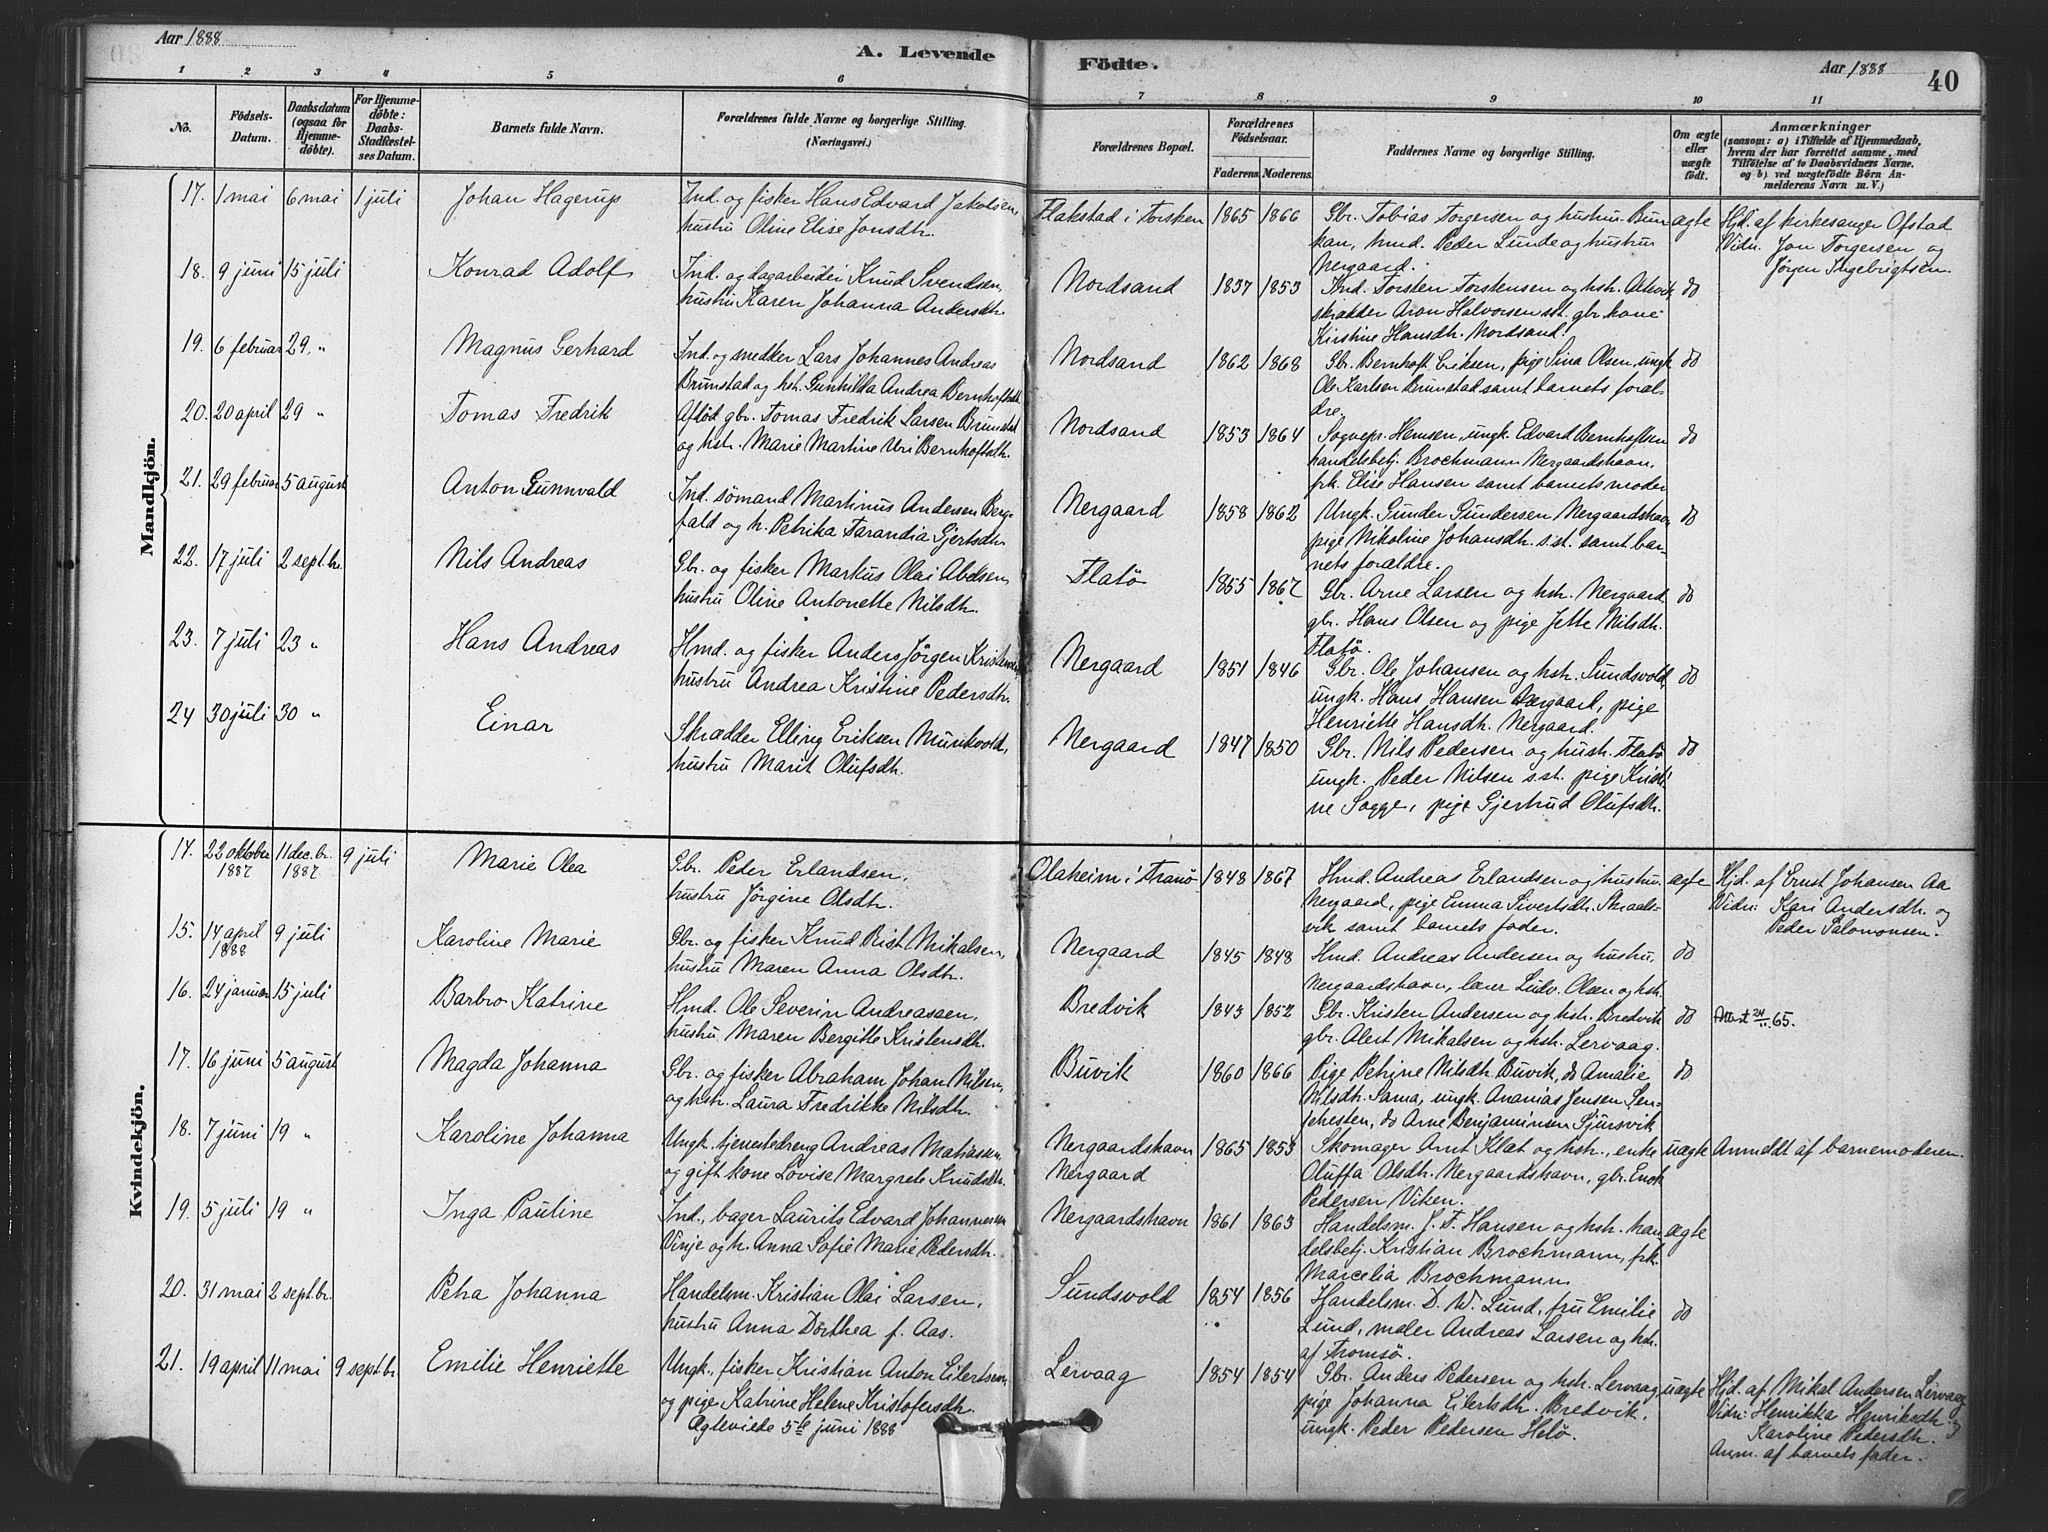 Aar 1888
A. Levende
Födte.
Aar 1888
40
1 2 3 4 5 6 7 8 9 10 11
No.
Födsels-
Datum.
Daabsdatum
(ogsaa for
Hjemme-
döbte).
For Hjemme-
döbte:
Daabs-
Stadfæstel-
ses Datum.
Barnets fulde Navn.
Forældrenes fulde Navne og borgerlige Stilling.
(Næringsvei.)
Forældrenes Bopæl.
Forældrenes
Födselsaar.
Faderens Moderens
Faddernes Navne og borgerlige Stilling.
Om ægte
eller
uægte
födt.
Anmærkninger
(saasom: a) i Tilfælde af Hjemmedaab,
hvem der har forrettet samme, med
Tilföielse af to Daabsvidners Navne.
og b) ved uægtefödte Börn An-
melderens Navn m. V.)
Mandkjön.
17. 1 mai 6 mai 1 juli Johan Hagerup
Ind. og fisker Hans Edvard Jakobsen,
hustru Oline Elise Jonsdtr.
Flakstad i Torsken 1865 1866
Gbr. Tobias Torgersen og hustru Bun
kan, hmd. Peder Lunde og hustru
Nergaard.
ægte
Hjd. af kirkesanger Ofstad
Vidn. Jon Torgersen og
Jörgen Ingebrigtsen.
18. 9 juni 15 juli Konrad Adolf
Ind. og dagarbeider Knud Svendsen,
hustru Karen Johanna Andersdtr.
Nordsand 1837 1853
Ind. Torsten Torstensen og hstr.
skrædder Aron Halvorsen sst. gbr. kone
Kirstine Hansdtr. Nordsand.
do
19. 6 februar 29. " Magnus Gerhard
Ind. og smedker Lars Johannes Andreas
Brunstad og hst. Gunhilda Andrea Bernhoftsdtr.
Nordsand 1862 1868
Gbr. Bernhoft Eriksen, pige Sina Olsen, ungk.
Ole Karlsen Brunstad samt barnets foræl-
dre.
do
20. 20 april 29 " Tomas Fredrik
Afdöd gbr. Tomas Fredrik Larsen Brunstad
og hstr. Marie Martine Uri Bernhoftsdtr.
Nordsand 1853 1864
Sognepr. Hemsen, ungk. Edvard Bernhoftsen
handelsbetj. Brochmann Nergaardshavn,
frk. Elise Hansen samt barnets moder
do
21. 29 februar 5 august Anton Gunnvald
Ind. sömand Martinus Andersen Berg-
fald og h. Petrika Farandia Gjertsdtr.
Nergaard 1858 1862
Ungk. Gunder Gundersen Nergaardshavn
pige Nikoline Johansdtr. s.st. samt bar-
nets forældre.
do
22. 17 juli 2 septbr. Nils Andreas
Gbr. og fisker Markus Olai Abelsen,
hustru Oline Antonette Nilsdtr.
Flatö 1855 1867
Gbr. Arne Larsen og hstr. Nergaard
gbr. Hans Olsen og pige Jette Nilsdtr.
Flatö.
do
23. 7 juli 23 " Hans Andreas
Hmd. og fisker Anders Jörgen Kristensen
hustru Andrea Kristine Pedersdtr.
Nergaard 1851 1846
Gbr. Ole Johansen og hstr. Sundsvold,
ungk. Hans Hansen Nergaard, pige
Henriette Hansdtr. Nergaard.
do
24 30 juli 30 " Einar
Skrædder Elling Eriksen Munkvold,
hustru Marit Olufsdtr.
Nergaard 1847 1850
Gbr. Nils Pedersen og hustr. Flatö
ungk. Peder Nilsen s.st. pige Kristi
ne Sogge, pige Gjertrud Olufsdtr.
do
Kvindekjön.
14. 22 oktober 1887 11 dec.br. 1887 9 juli Marie Olea
Gbr. Peder Erlandsen,
hustru Jörgine Olsdtr.
Olaheim i Tranö 1848 1867
Hmd. Andreas Erlandsen og hustru.
Nergaard, pige Emma Sivertsdtr. Skraals-
vik samt barnets fader.
ægte
Hjd. af Ernst Johansen Aa
Vidn: Kari Andersdtr. og
Peder Salomonsen.
15. 14 april 1888 9 juli Karoline Marie
Gbr. og fisker Knud Rist Mikalsen,
hustru Maren Anna Olsdtr.
Nergaard 1845 1848
Hmd. Andreas Andersen og hustru,
Nergaardshavn, lærer Ludv. Olsen og hstr.
do
16. 24 januar 15 juli Barbro Katrine
Hmd. Ole Severin Andreassen,
hustru Maren Bergitte Kristensdtr.
Bredvik 1843 1852
Gbr. Kristen Andersen og hstr. Bredvik
gbr. Alert Mikalsen og hstr. Lervaag.
do
Attest 24/11 65.
17. 16 juni 5 august Magda Johanna
Gbr. og fisker Abraham Johan Nilsen,
og hstr. Laura Fredrikke Nilsdtr.
Buvik 1860 1866
Pige Petrine Nilsdtr. Buvik, do Amalie
Nilsdtr. Sama, ungk. Ananias Jensen Sen-
jehesten, do Arne Benjaminsen Sjursvik
do
18. 7 juni 19 " Karoline Johanna
Ungk. tjenestedreng Andreas Matiassen
og gift kone Lovise Margrete Knudsdtr.
Nergaardshavn
Nergaard
1865 1853
Skomager Arnt Klat og hstr., enke
Oluffa Olsdtr. Nergaardshavn, gbr. Enok
Pedersen Viken.
uægte
Anmeldt af barnemoderen.
19. 5 juli 19 " Inga Pauline
Ind., bager Laurits Edvard Johannessen
Vinje og h. Anna Sofie Marie Pedersdtr.
Nergaardshavn 1861 1863
Handelsm. J. F. Hansen og hstr. han
delsbetj. Kristian Brochmann, frk.
Marcelia Brochmann.
ægte
20. 31 mai 2 septbr. Petra Johanna
Handelsm. Kristian Olai Larsen,
hustru Anna Dorthea f. Aas.
Sundsvold 1854 1856
Handelsm. D. W. Lund, fru Emilie
Lund, maler Andreas Larsen og hstr.
af Tromsö.
do
21. 19 april 11 mai 9 septbr. Emilie Henriette
Ungk., fisker Kristian Anton Eilertsen,
og pige Katrine Helene Kristofersdtr.
Ægteviede 5te juni 1888
Lervaag 1854 1854
Gbr. Anders Pedersen og hstr. Lervaag,
pige Johanna Eilertsdtr. Bredvik,
ungk. Peder Pedersen Helö.
uægte
Hjd. af Mikal Andersen Lervaag
Vidn: Henrikka Henriksdtr. og
Karoline Pedersdtr.
Anm. af barnets fader.